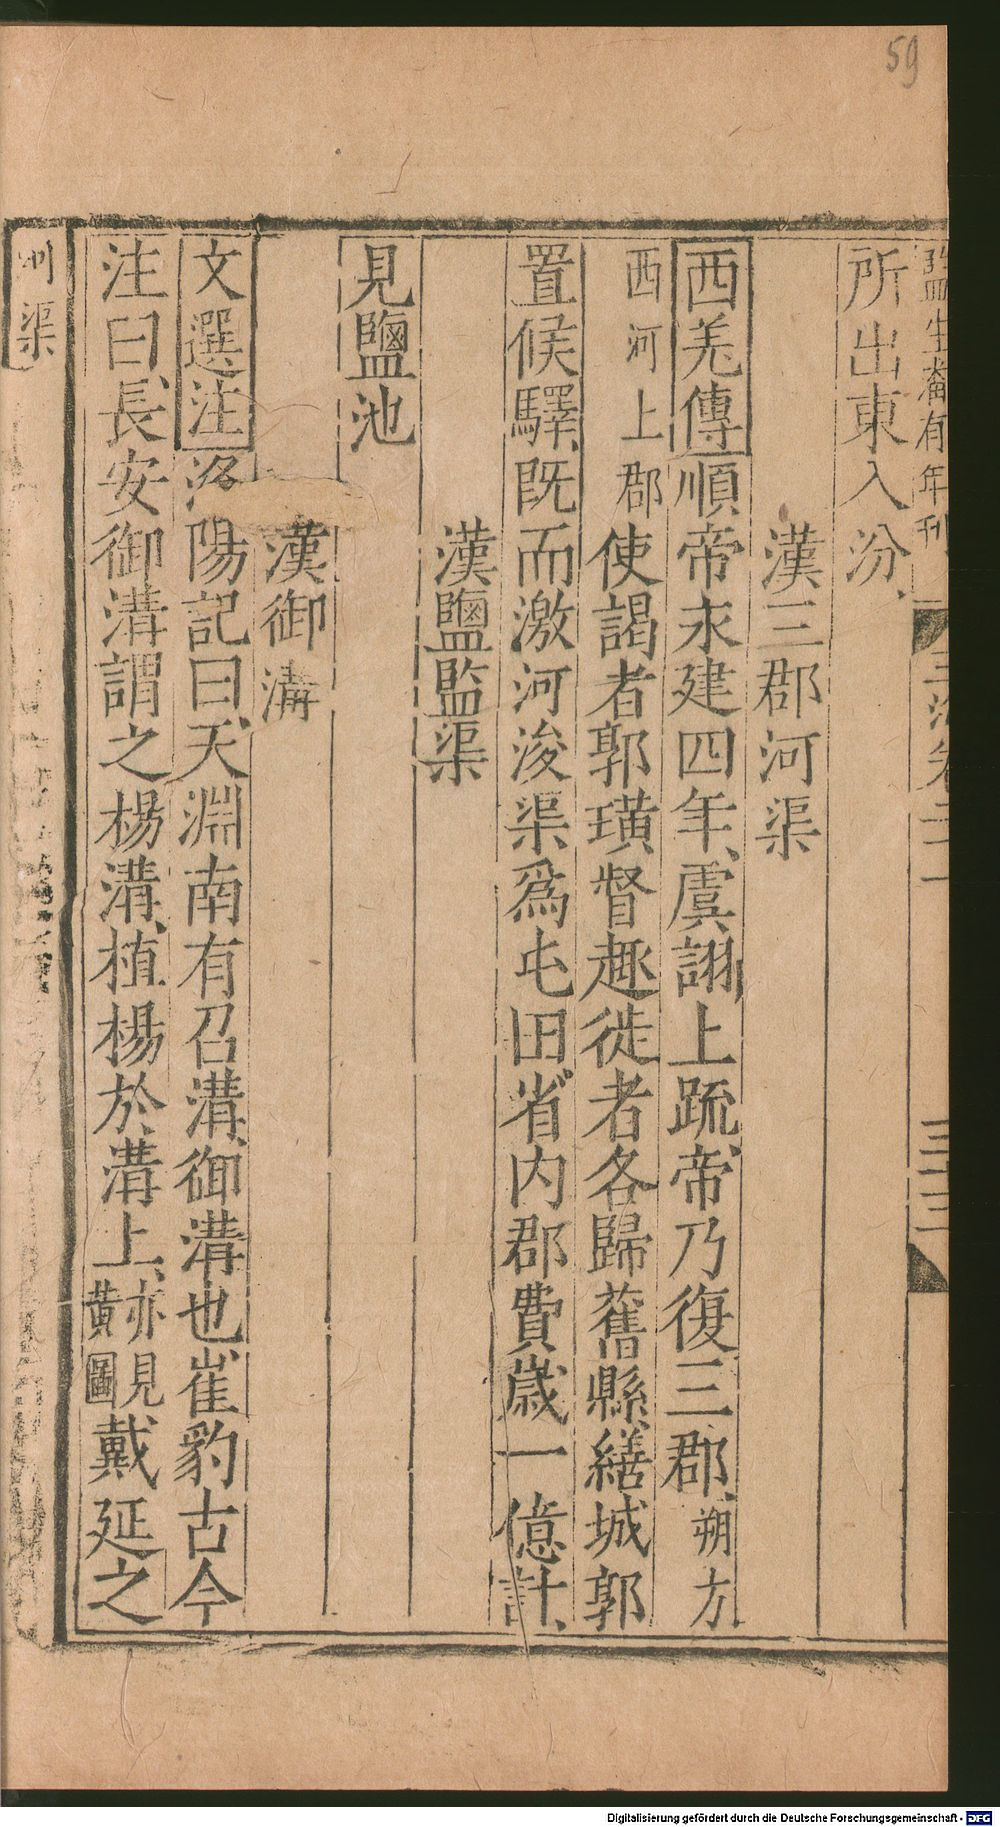 59
監生秦有年刊
三
所出東入汾、
漢三郡河渠
西羌傳順帝永建四年、虞詡上疏、帝乃復三郡、朔方
西河上郡使謁者郭璜督趣徙者各歸舊縣、繕城郭
置候驛、既而激河浚渠爲屯田、省内郡費歲一億計、
漢鹽監渠
見鹽池
漢御溝
文選注洛陽記曰、天淵南有召溝、御溝也、崔豹古今
注曰、長安御溝謂之楊溝、植楊於溝上、亦見黃圖戴延之
渠
Digitalisierung gefördert durch die Deutsche Forschungsgemeinschaft - DFG